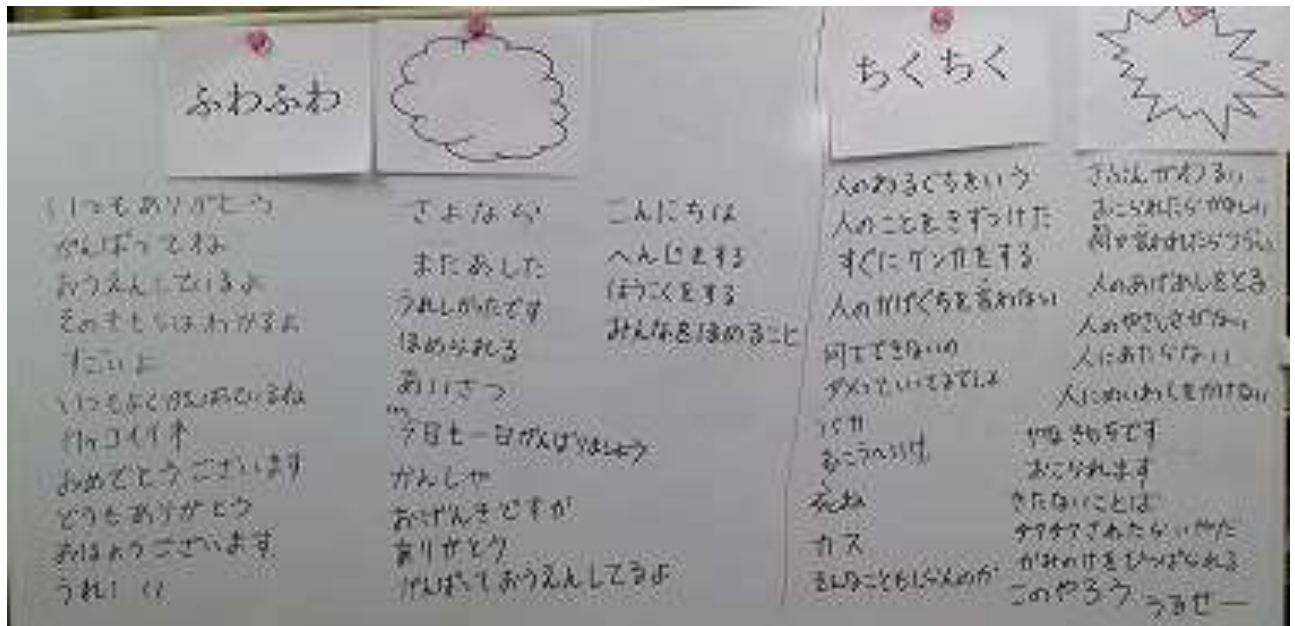 ふわふわ
いつもありがとう
がんばってね
おうえんしているよ
そのきもちはわかるよ
すごいよ
いつもよくがんばっているね
カッコイイネ
おめでとうございます
どうもありがとう
おはようございます
うれしい
さよなら
またあした
うれしかったです
ほめられる
あいさつ
今日も一日がんばりましょう
かんしゃ
おげんきですか
ありがとう
がんばっておうえんしてるよ
こんにちは
へんじをする
ほうこくをする
みんなをほめること
ちくちく
人のわるぐちをいう
人のことをきずつけた
すぐにケンカをする
人のかげぐちを言わない
何でできないの
ダメっていってるでしょ
バカ
むこうへいけ
死ね
カス
そんなこともしらんのか
きぶんがわるい
おこられたらかなしい
何か言われたらつらい
人のあげあしをとる
人のやさしさがない
人にあたらない
人にめいわくをかけない
やなきもちです
おこられます
きたないことば
されたらいやだ
かみのけをひっぱられる
このやろう
うるせー